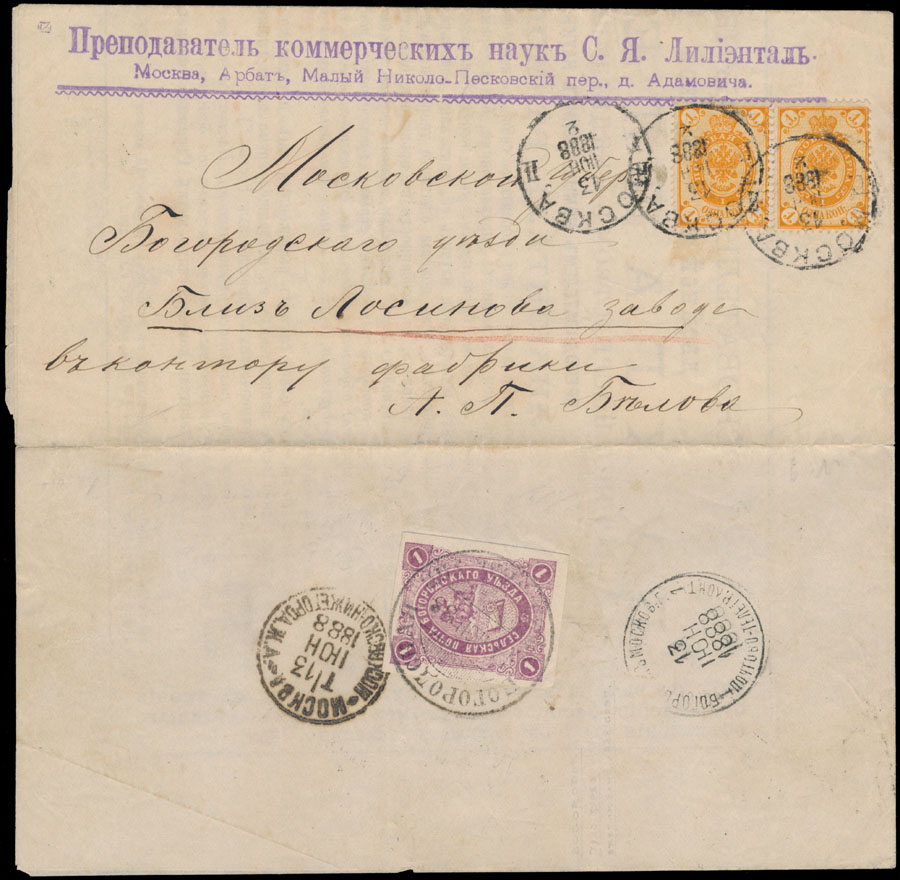 Преподаватель коммерческихъ наукъ С. Я. Лиліэнталь.
Москва, Арбатъ, Малый Николо-Песковскій пер., д. Адамовича.
Московской Губер
Богородскаго уѣзда
Близъ Лосинова завода
въ контору фабрики
А. П. Бѣлова
МОСКВА II
13 ІЮН 1888
2
МОСКВА
13
1888
2
МОСКВА
13
1888
2
1 1
1 1
1 1
СЕЛЬСКАЯ ПОЧТА БОГОРОДСКАГО УѢЗДА
1 1
БОГОРОДСК
МОСКВА МОСКОВСКО-НИЖЕГОРОД. Ж. Д.
13 ІЮН 1888
БОГОРО МОСКОВ ПОЧТОВО-ТЕЛЕГР. КОНТ.
ІЮН 1888